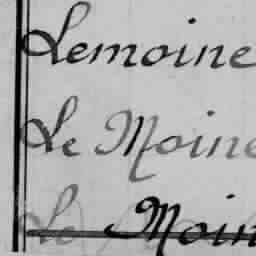 Lemoine
Le Moine
Le Moin